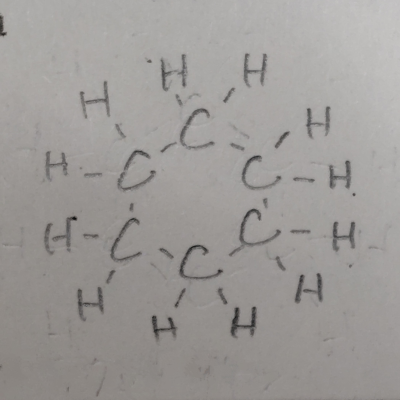 H H
H C H
H C C H
H C C H
H C H
H H